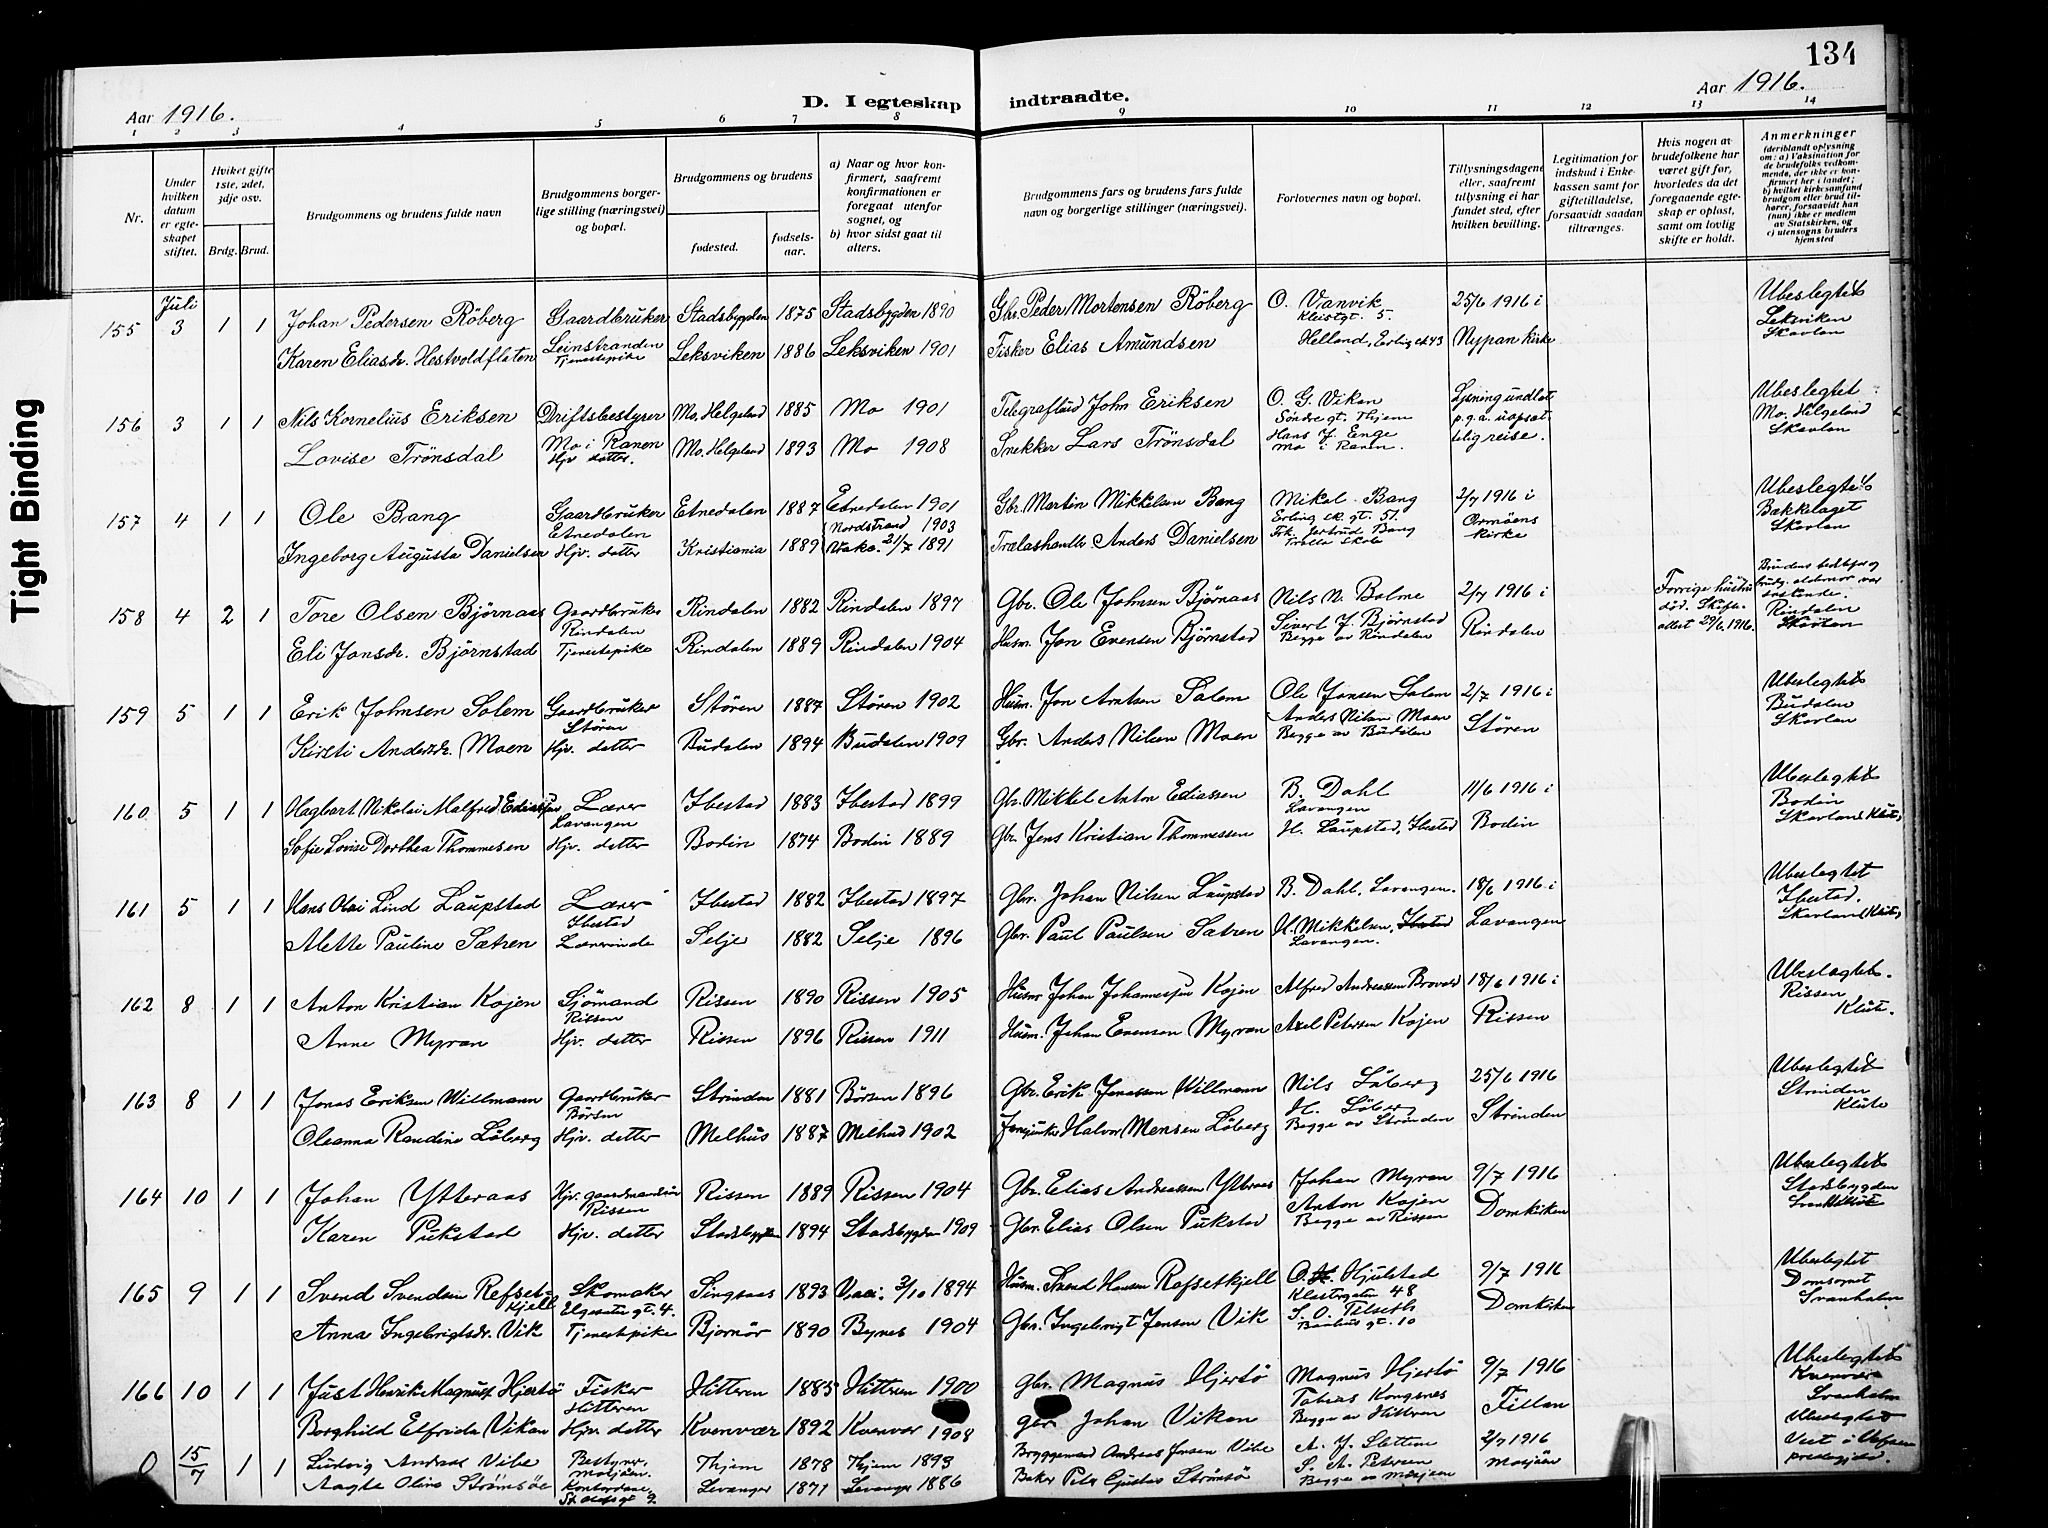 134
Aar 1916.
D. I egteskap indtraadte.
Aar 1916.
1 2 3 4 5 6 7 8 9 10 11 12 13 14
Nr.
Under hvilken datum er egteskapet stiftet.
Hvilket gifte 1ste, 2det, 3dje osv.
Brdg. Brud.
Brudgommens og brudens fulde navn
Brudgommens borgerlige stilling (næringsvei) og bopæl.
Brudgommens og brudens
fødested. fødselsaar.
a) Naar og hvor konfirmert, saafremt konfirmationen er foregaat utenfor sognet, og
b) hvor sidst gaat til alters.
Brudgommens fars og brudens fars fulde navn og borgerlige stillinger (næringsvei).
Forlovernes navn og bopæl.
Tillysningsdagene eller, saafremt tillysning ei har fundet sted, efter hvilken bevilling.
Legitimation for indskud i Enkekassen samt for giftetilladelse, forsaavidt saadan tiltrænges.
Hvis nogen av brudefolkene har været gift før, hvorledes da det foregaaende egteskap er opløst, samt om lovlig skifte er holdt.
Anmerkninger (deriblandt oplysning om: a) Vaksination for de brudefolks vedkommende, der ikke er konfirmert her i landet; b) hvilket kirkesamfund brudgom eller brud tilhører, forsaavidt han (hun) ikke er medlem av Statskirken, og c) utensogns bruders hjemsted
Juli
155 3 1 1 Johan Pedersen Röberg Gaardbruker Stadsbygden 1875 Stadsbygden 1890 Gbr. Peder Mortensen Röberg O. Vanvik 25/6 1916 i Ubeslegtet
Leinstranden Kleistgt. 5. Leksviken
Karen Eliasdr. Hestvoldflaten Tjenestepike Leksviken 1886 Leksviken 1901 Fisker Elias Amundsen Helland, Nypan kirke Skavlan
156 3 1 1 Nils Kornelius Eriksen Driftsbestyrer Mo. Helgeland 1885 Mo 1901 John Eriksen O. G. Viken Lysning undlat Ubeslegtet
Mo i Ranen Söndregt. Thjem p.g.a. uopsæt Mo. Helgeland
Lovise Trönsdal Hjv. datter. Mo. Helgeland 1893 Mo 1908 Snekker Lars Trönsdal Hans J. Enge Mo i Ranen. telig reise. Skavlan
157 4 1 1 Ole Bang Gaardbruker Etnedalen 1887 Etnedalen 1901 Gbr. Martin Mikkelsen Bang Mikal Bang 2/7 1916 i Ubeslegtet
Etnedalen Nordstrand 1903 Erling sk. gt. 51. Ormöens Bækkelaget
Ingeborg Augusta Danielsen Hjv. datter Kristiania 1889 21/7 1891 Trælasthandler Anders Danielsen Frk. Gertrud Bang Kirke Skavlan
158 4 2 1 Tore Olsen Björnaas Gaardbruker Rindalen 1882 Rindalen 1897 Gbr. Ole Johnsen Björnaas Nils N. Bolme 2/7 1916 i Forrige hustru död. Skifteattest 29/6. 1916.
Rindalen Sivert J. Björnstad Rindalen
Eli Jonsdr. Björnstad Tjenestepike Rindalen 1889 Rindalen 1904 Husm. Jon Evensen Björnstad Begge av Rindalen Rindalen Skavlan
159 5 1 1 Erik Johnsen Solem Gaardbruker Stören 1887 Stören 1902 Husm. Jon Arntsen Solem Ole Jonsen Solem 2/7 1916 i Ubeslegtet
Stören Anders Nilsen Moen Budalen
Kirsti Andersdr. Moen Hjv. datter Budalen 1894 Budalen 1909 Gbr. Anders Nilsen Moen Begge av Budalen Stören Skavlan
160 5 1 1 Hagbart Nikolai Malfred Ediassen Lærer Ibestad 1883 Ibestad 1899 Gbr. Mikkel Anton Ediassen B. Dahl 11/6 1916 i Ubeslegtet
Lavangen Lavangen Bodin
Sofie Lovise Dorthea Thommesen Hjv. datter Bodin 1874 Bodin 1889 Gbr. Jens Kristian Thommessen H. Laupstad, Ibestad Bodin
161 5 1 1 Hans Olai Lind Laupstad Lærer Ibestad 1882 Ibestad 1897 Gbr. Johan Nilsen Laupstad B. Dahl. Lavangen. 18/6 1916 i Ubeslegtet
Ibestad Ibestad.
Mette Pauline Sætren Lærerinde Selje 1882 Selje 1896 Gbr. Paul Paulsen Sætren H. Mikkelsen, Ibestad Lavangen. Lavangen
162 8 1 1 Anton Kristian Kojen Sjömand Rissen 1890 Rissen 1905 Husm. Johan Johannessen Kojen Alfred Andreassen Brovold 18/6 1916 i Ubeslegtet.
Rissen Rissen
Anne Myran Hjv. datter Rissen 1896 Rissen 1911 Husm. Johan Evensen Myran Axel Petersen Kojen Rissen Klüte.
163 8 1 1 Jonas Eriksen Willmann Gaardbruker Strinden 1881 Börsen 1896 Gbr. Erik Jonassen Willmann Nils Löberg 25/6 1916 Ubeslegtet
Börsen H. Löberg Strinden
Oleanna Randine Löberg Hjv. datter Melhus 1887 Melhus 1902 Halvor Monsen Löberg Begge av Strinden Strinden Klüte
164 10 1 1 Johan Ytteraas Hjv. gaardmandsön Rissen 1889 Rissen 1904 Gbr. Elias Andreassen Ytteraas Johan Myran 9/7 1916 Ubeslegtet
Rissen Anton Kojen Stadsbygden
Karen Pukstad Hjv. datter Stadsbygden 1894 Stadsbygden 1909 Gbr. Elias Olsen Pukstad Begge av Rissen Domkirken
165 9 1 1 Svend Svendsen Refsetkjell Skomaker Singsaas 1893 3/10 1894 Husm. Svend Hansen Refsetkjell Hjulstad 9/7 1916 Ubeslegtet
Elgeseter gt. 4. Klostergaten 48 Domsognet
Anna Ingebrigtsdr. Vik Tjenestepike Bjørnör 1890 Bynes 1904 Gbr. Ingebrigt Jensen Vik S. O. Tilseth Domkirken Svanholm
166 10 1 1 Just Henrik Magnus Hjertö Fisker Hitteren 1885 Hitteren 1900 Gbr. Magnus Hjertö Magnus Hjertö 9/7 1916 Ubeslegtet
Hitteren Tobias Kongsnes Kvenvær
Borghild Elfrida Vikan Hjv. datter Kvenvær 1892 Kvenvær 1908 Gbr. Johan Vikan Begge av Hitteren Fillan Svanholm
0 15/7 1 1 Ludvig Andreas Vibe Bestyrer Thjem 1878 Thjem 1893 Bryggemand Andreas Jensen Vibe A. J. Slettem 2/7 1916 Ubeslegtet
Mosjöen. S. A. Petersen Vest i Vefsen
Aagte Oline Strömsöe Levanger 1871 Levanger 1886 Baker Peter Gustav Strömsö Begge av Mosjöen Mosjöen prestegjeld.
Tight Binding